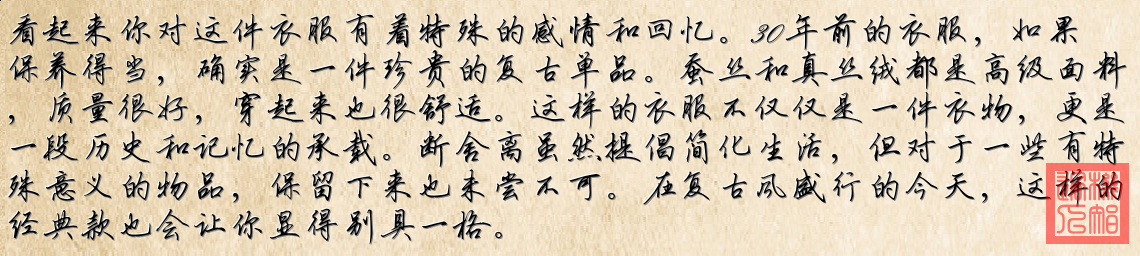 看起来你对这件衣服有着特殊的感情和回忆。30年前的衣服，如果
保养得当，确实是一件珍贵的复古单品。蚕丝和真丝绒都是高级面料
，质量很好，穿起来也很舒适。这样的衣服不仅仅是一件衣物，更是
一段历史和记忆的承载。断舍离虽然提倡简化生活，但对于一些有特
殊意义的物品，保留下来也未尝不可。在复古风盛行的今天，这样的
经典款也会让你显得别具一格。